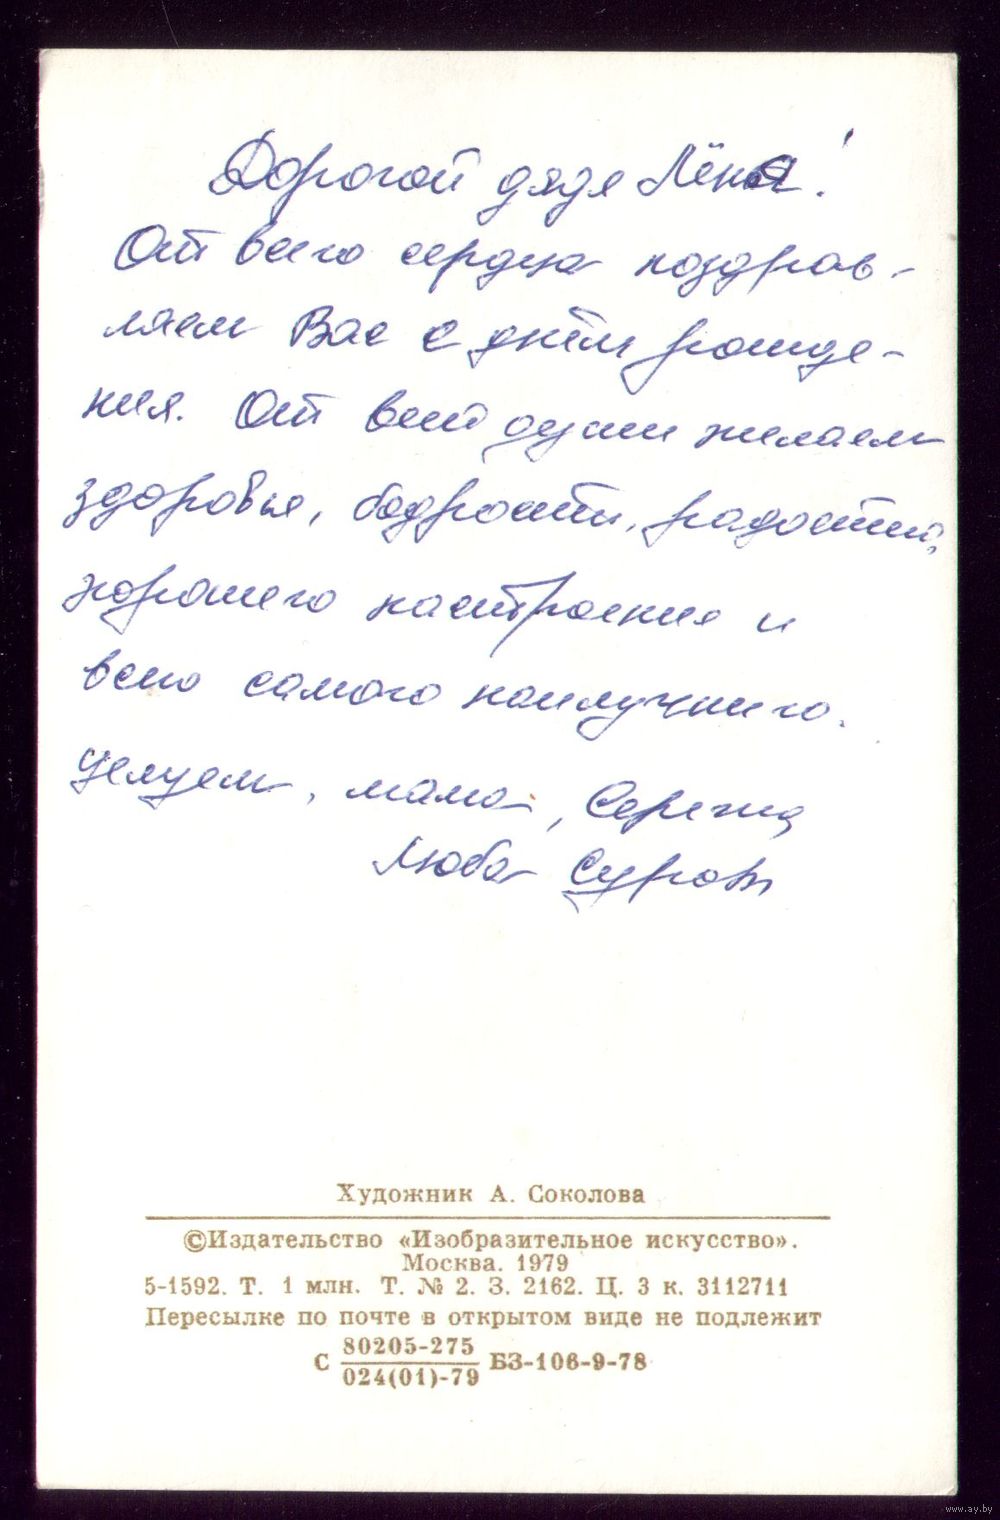 Дорогой дядя Лёня!
От всего сердца поздрав-
ляем Вас с днём рожде-
ния. От всей души желаем
здоровья, бодрости, радости,
хорошего настроения и
всего самого наилучшего.
Целуем, мама, Сережа
Люба
Художник А. Соколова
©Издательство «Изобразительное искусство».
Москва. 1979
5-1592. Т. 1 млн. Т. № 2. З. 2162. Ц. 3 к. 3112711
Пересылке по почте в открытом виде не подлежит
С 80205-275 БЗ-106-9-78
024(01)-79
www.ay.by